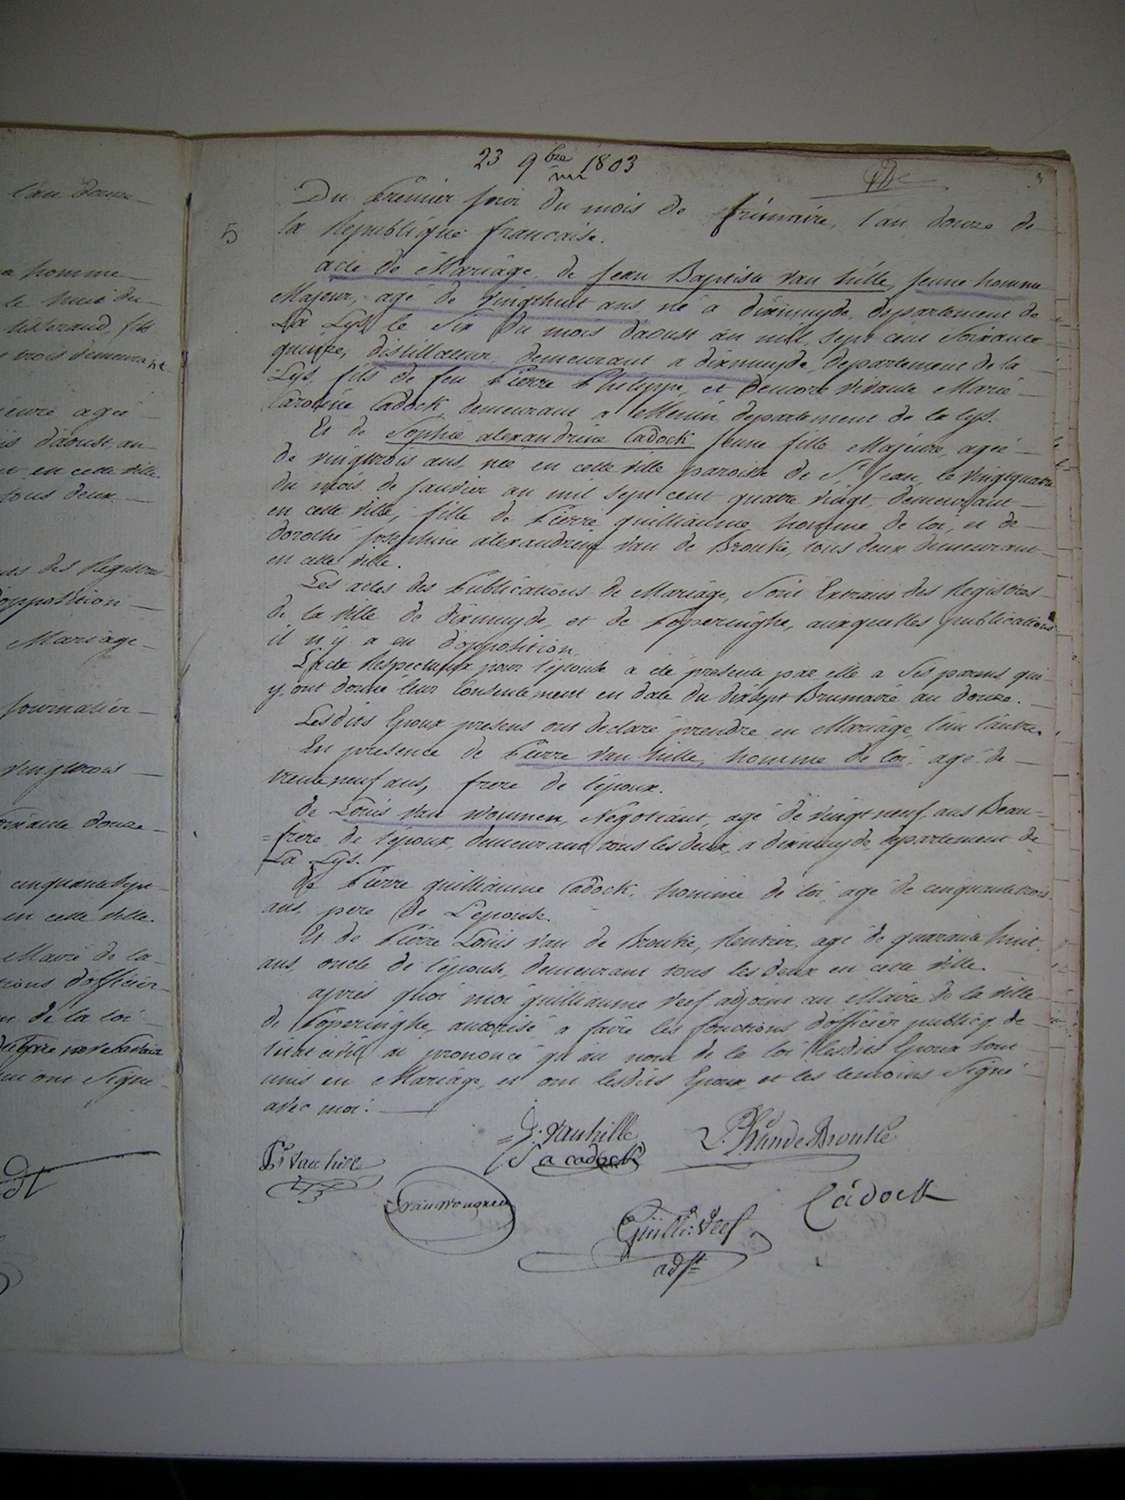 23 9bre 1803
5
Du Premier jour du mois de frimaire, l'an douze de
la République française.
acte de Mariage de Jean Baptiste Van hille, jeune homme
Majeur, agé de vingthuit ans né a dixmuyde, departement de
La Lys, le Six du mois d'aoust an mil sept cent Soixante
quinze, distillateur demeurant a dixmuyde, departement de la
Lys, fils de feu Pierre Philippe, et Encore Vivante Marie
Caroline Cadock, demeurant a Menin, departement de la Lys.
Et de Sophie alexandrine Cadock jeune fille Majeure, agée
de vingttrois ans, née en cette ville paroisse de St. Jean, le vingtquatre
du mois de janvier an mil sept cent quatre vingt, demeurant
en cette ville, fille de Pierre guilliaume, homme de loi, et de
dorothé josephine alexandrine Van de Broukke, tous deux demeurant
en cette ville.
Les actes des Publications de Mariage, Sont Extraits des Registres
de la ville de dixmuyde, et de Poperinghe, auxquelles publications
il n'y a eu d'opposition.
L'acte Respectueux pour l'épouse a été presenté par elle a Ses parens qui
y ont donné leur Consentement en date du dixsept Brumaire an douze.
Lesdits Epoux presens ont declaré prendre en Mariage l'un l'autre.
En presence de Pierre Van hille, homme de loi, agé de
trenteneuf ans, frere de l'époux.
de Louis Van Négotiant, agé de vingt neuf ans Beau-
=frere de l'époux, demeurant tous lesdeux a dixmuyde departement de
La Lys.
de Pierre guilliaume Cadock, homme de loi agé de cinquantetrois
ans, pere de L'epouse.
Et de Pierre Louis Van de Broukke, Rentier, agé de quarante huit
ans, oncle de l'épouse, demeurant tous les deux en cette ville.
après quoi moi guilliaume Veef adjoint au Maire de la ville
de Poperinghe, autorisé a faire les fonctions d'officier public de
l'état civil, ai prononcé qu'au nom de la loi lesdits Epoux Sont
unis en Mariage, et ont lesdits Epoux et les temoins Signé
avec moi.
J. Vanhille
P. L. VandeBroukke
Pr Van hille
S a cadock
Cadock
Guille. Veef
adjt
l'an douze
homme
le huit du
trois demeurant
agée
d'aoust, an
en cette ville
tous deux
des Registres
d'opposition
Mariage
journalier
vingttrois
Soixante douze
cinquante Sept
en cette ville.
Maire de la
d'officier
de la loi
ont Signé